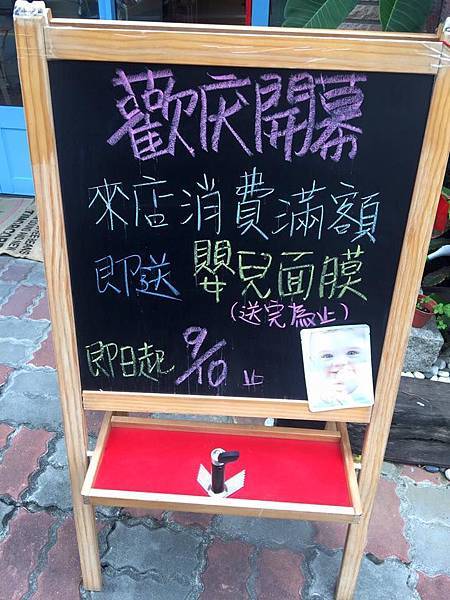 歡庆開幕
來店消費滿額
即送 嬰兒面膜
(送完為止)
即日起 9/10 止